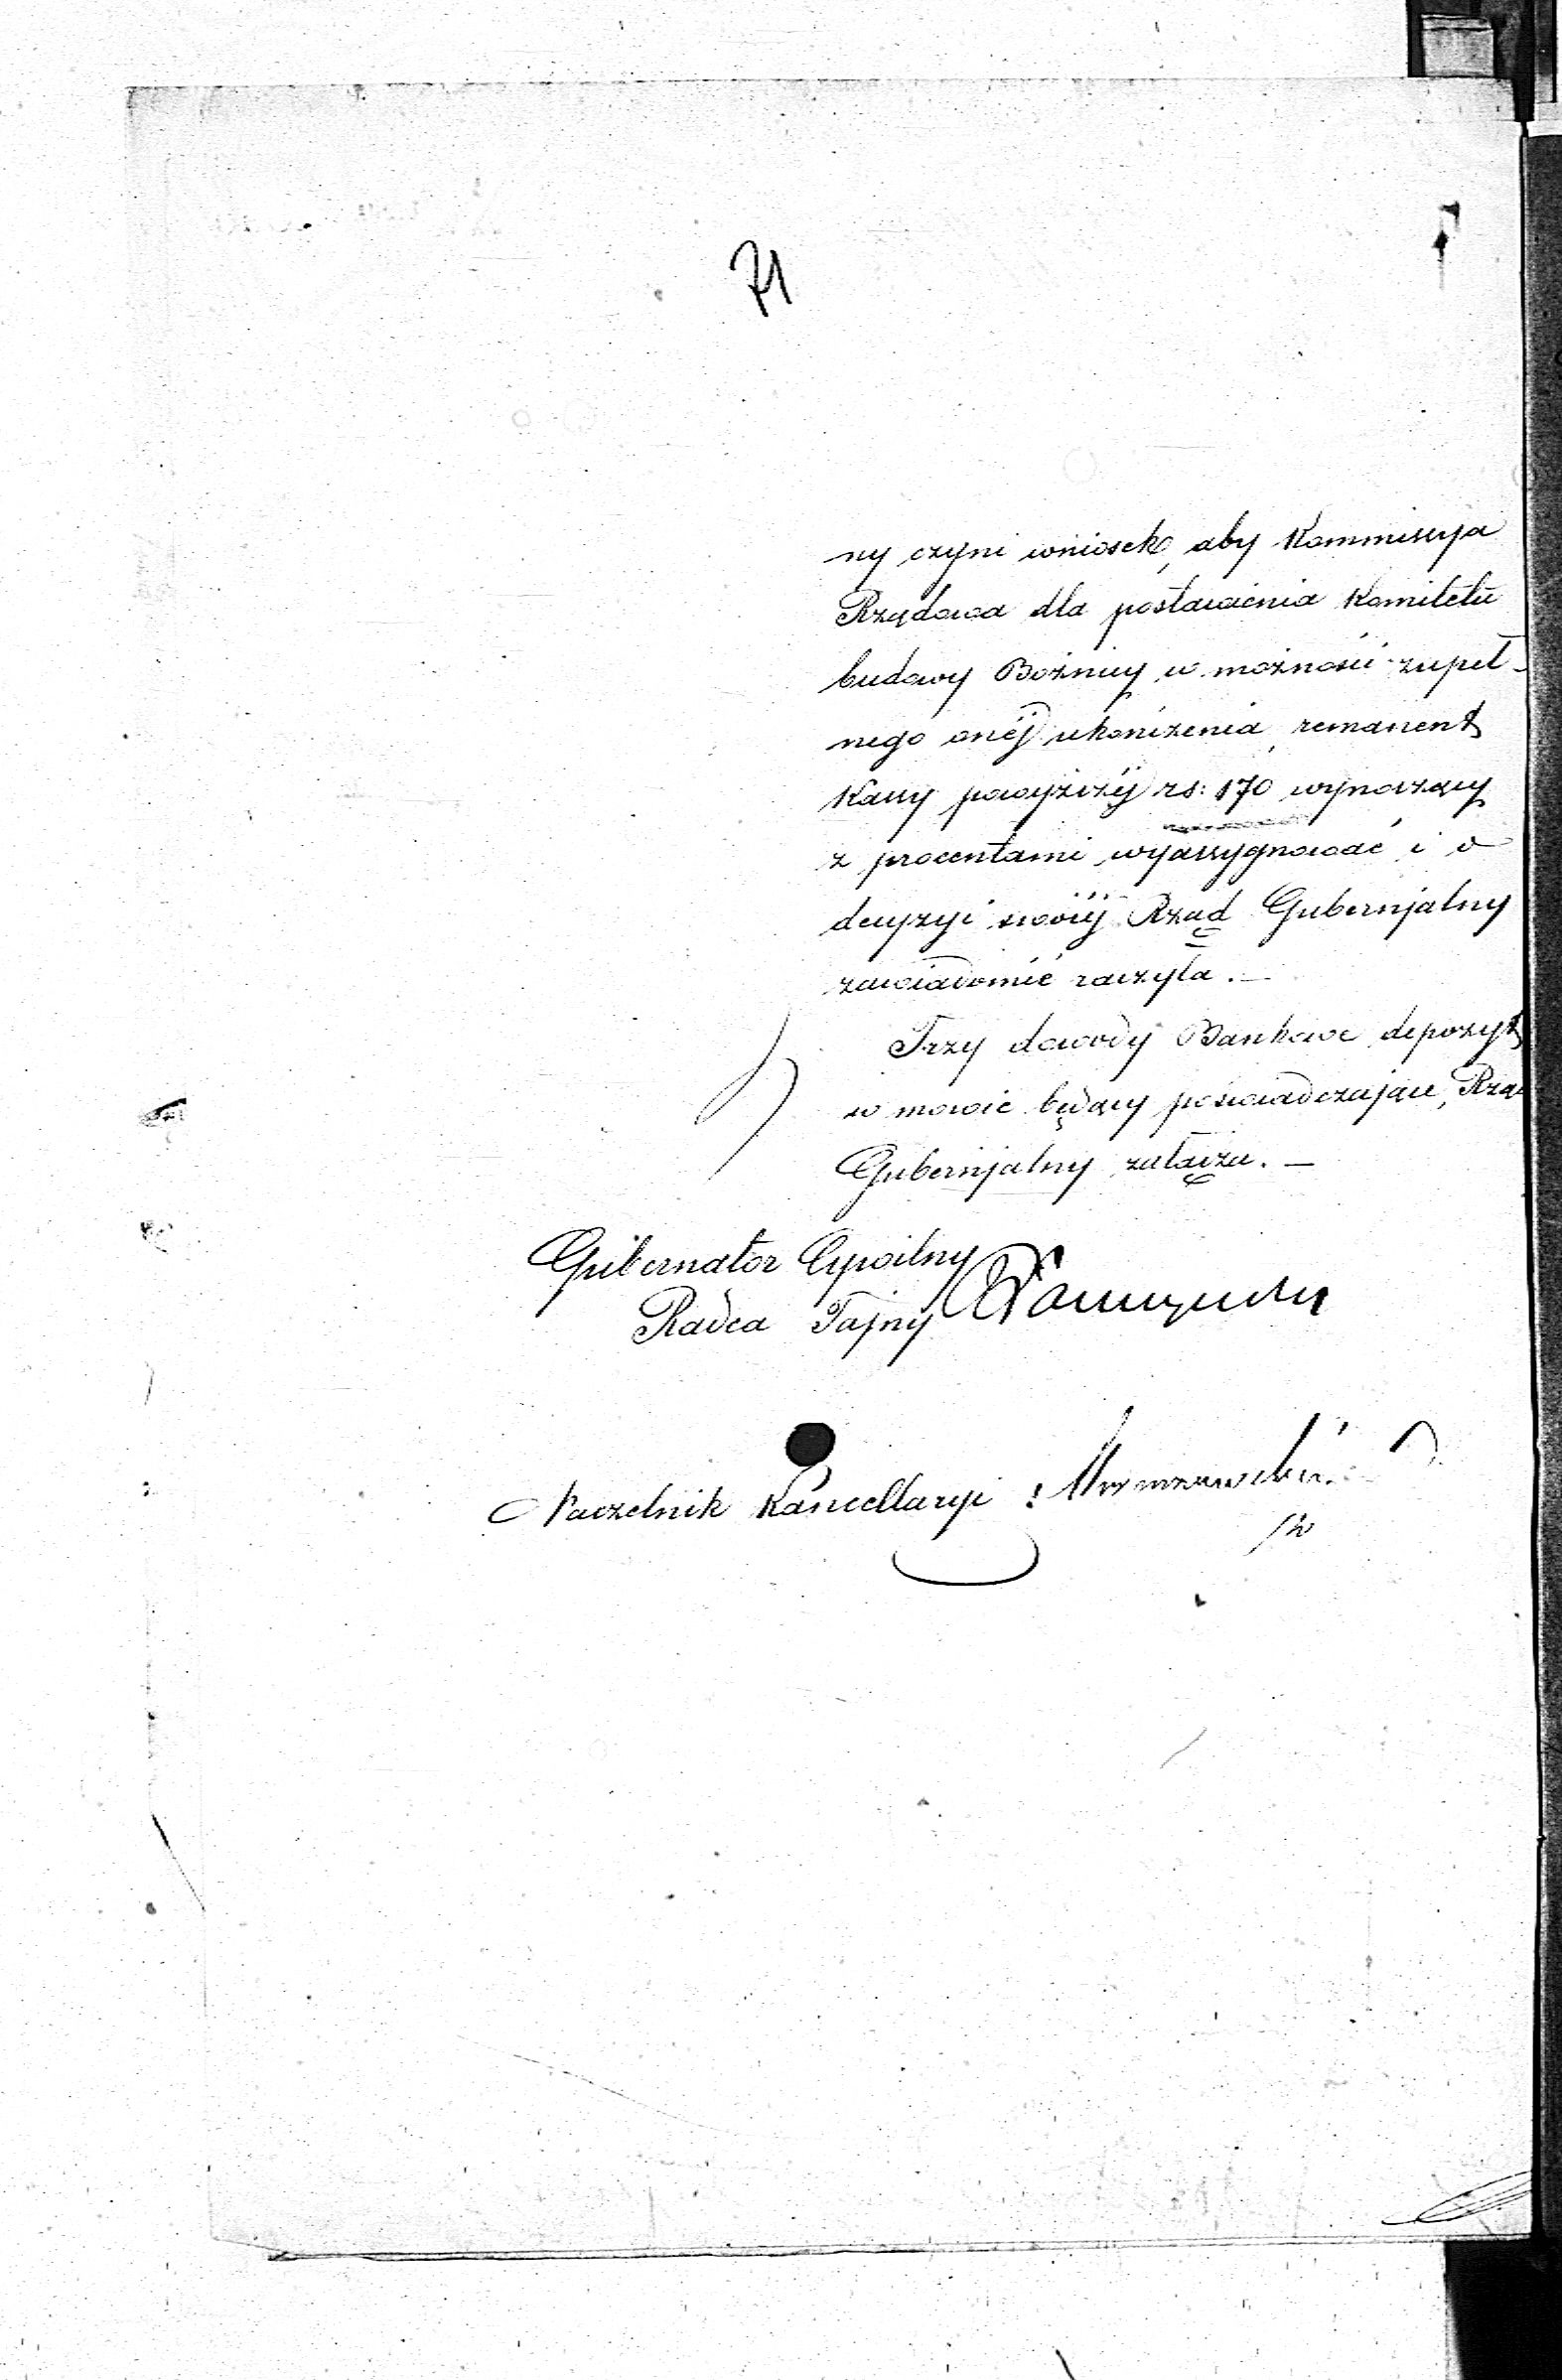 71
ny czyni wniosek, aby Kommissya
Rządowa dla postawienia Komitetu
budowy Bożnicy w możności zupeł-
nego onéj ukończenia, remanent
Kassy powyższéj rs: 170 wynoszący
z procentami wyassygnować i o
decyzyi swojéj Rząd Gubernjalny
zawiadomić raczyła. —
Trzy dowody Bankowe depozyt
w mowie będący poświadczające, Rząd
Gubernjalny załącza. —
Gubernator Cywilny
Radca Tajny
Naczelnik Kancellaryi